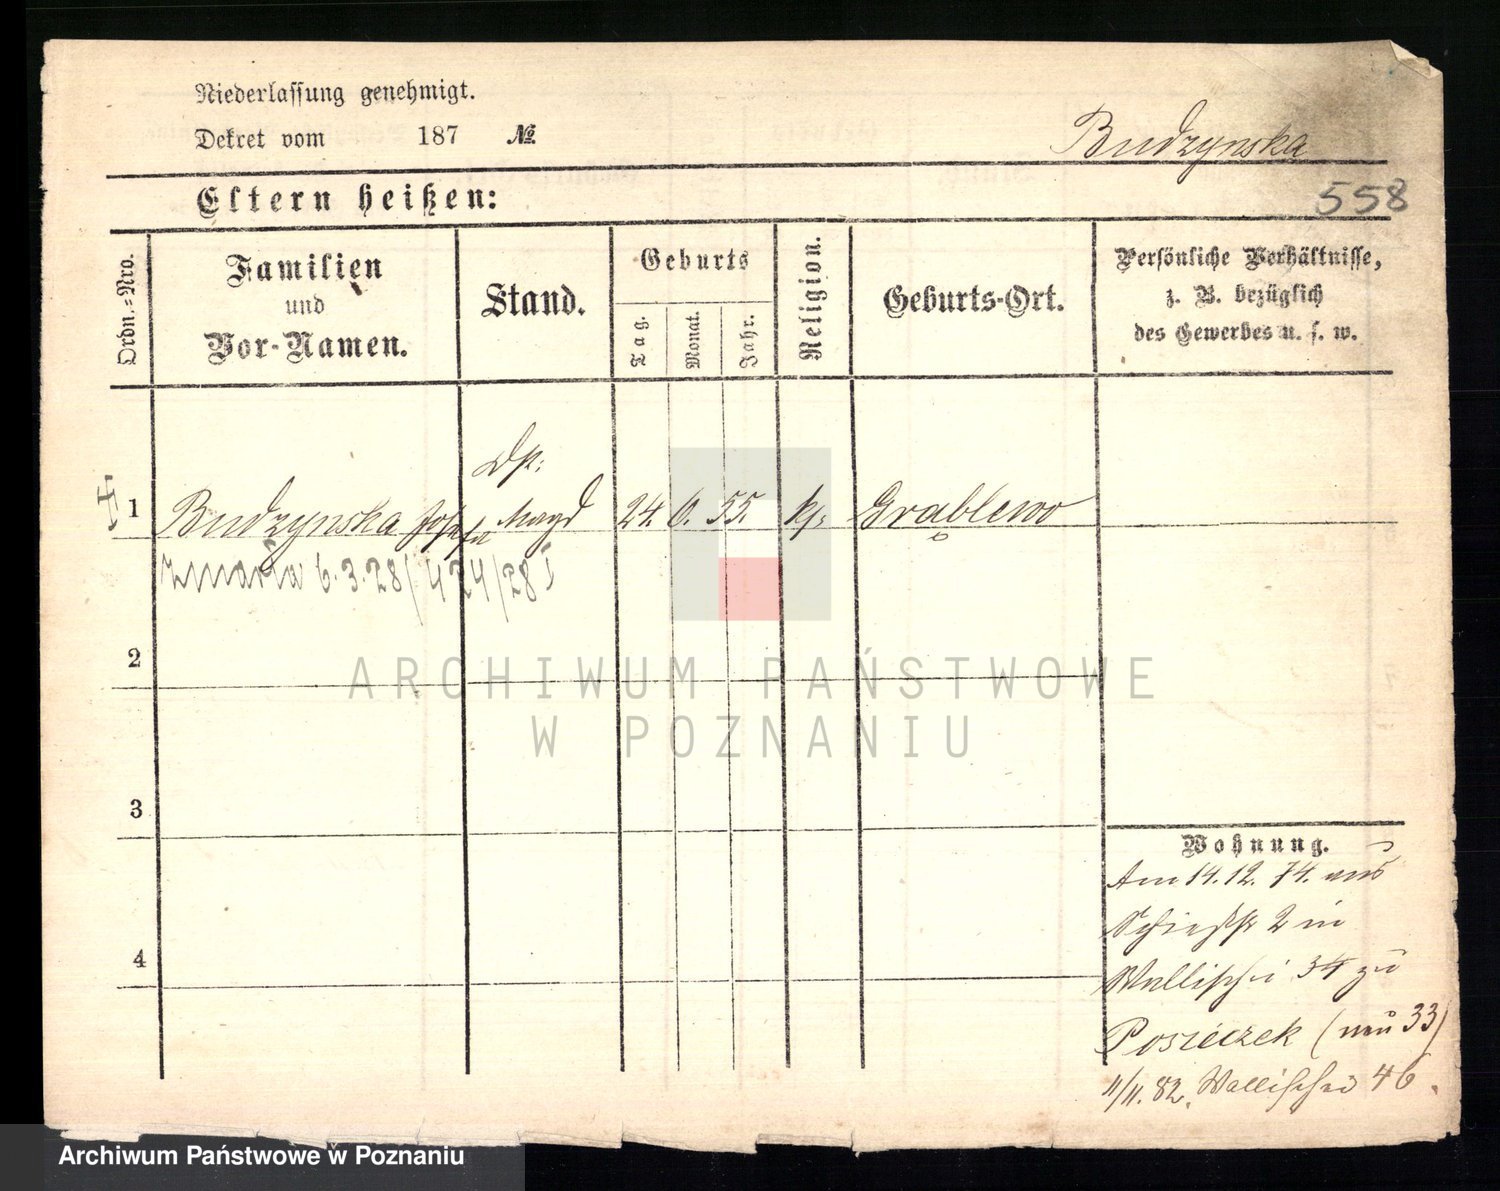 Niederlassung genehmigt.
Dekret vom 187 No.
Budzynska
Eltern heißen:
558
Ordn.=Nro.
Familien
und
Vor-Namen.
Stand.
Geburts
Tag.
Monat.
Jahr.
Religion.
Geburts-Ort.
Persönliche Verhältnisse,
z. B. bezüglich
des Gewerbes u. s. w.
1 Budzynska Josefa Magd 24. 6. 55. k. Grablewo
zmarła 6.3.28/424/28 I
2
3
4
Wohnung.
Am 14.12.74. aus
2 in
Wallischei 34 zu
Posieczek (neu 33)
11/11. 82. Wallischei 46.
ARCHIWUM PAŃSTWOWE
W POZNANIU
Archiwum Państwowe w Poznaniu